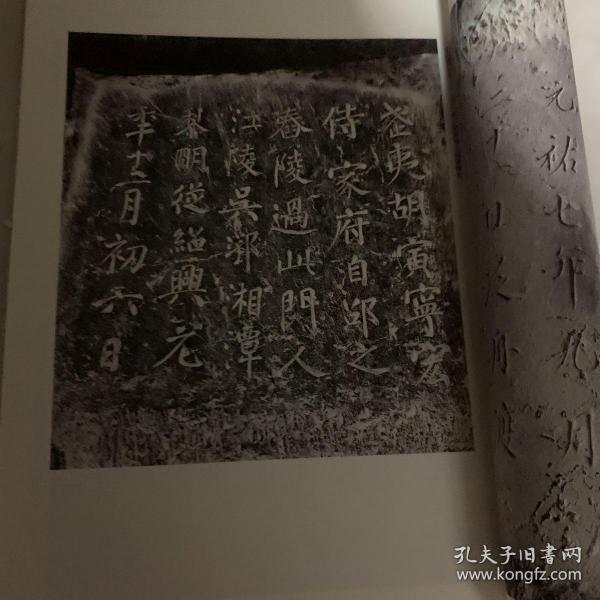 武夷胡寅寧宏
侍家府自邵之
舂陵過此門人
江陵吳郛湘潭
黎明從紹興元
季十二月初六日
元祐七年九月
二十日
孔夫子旧书网
www.kongfz.com